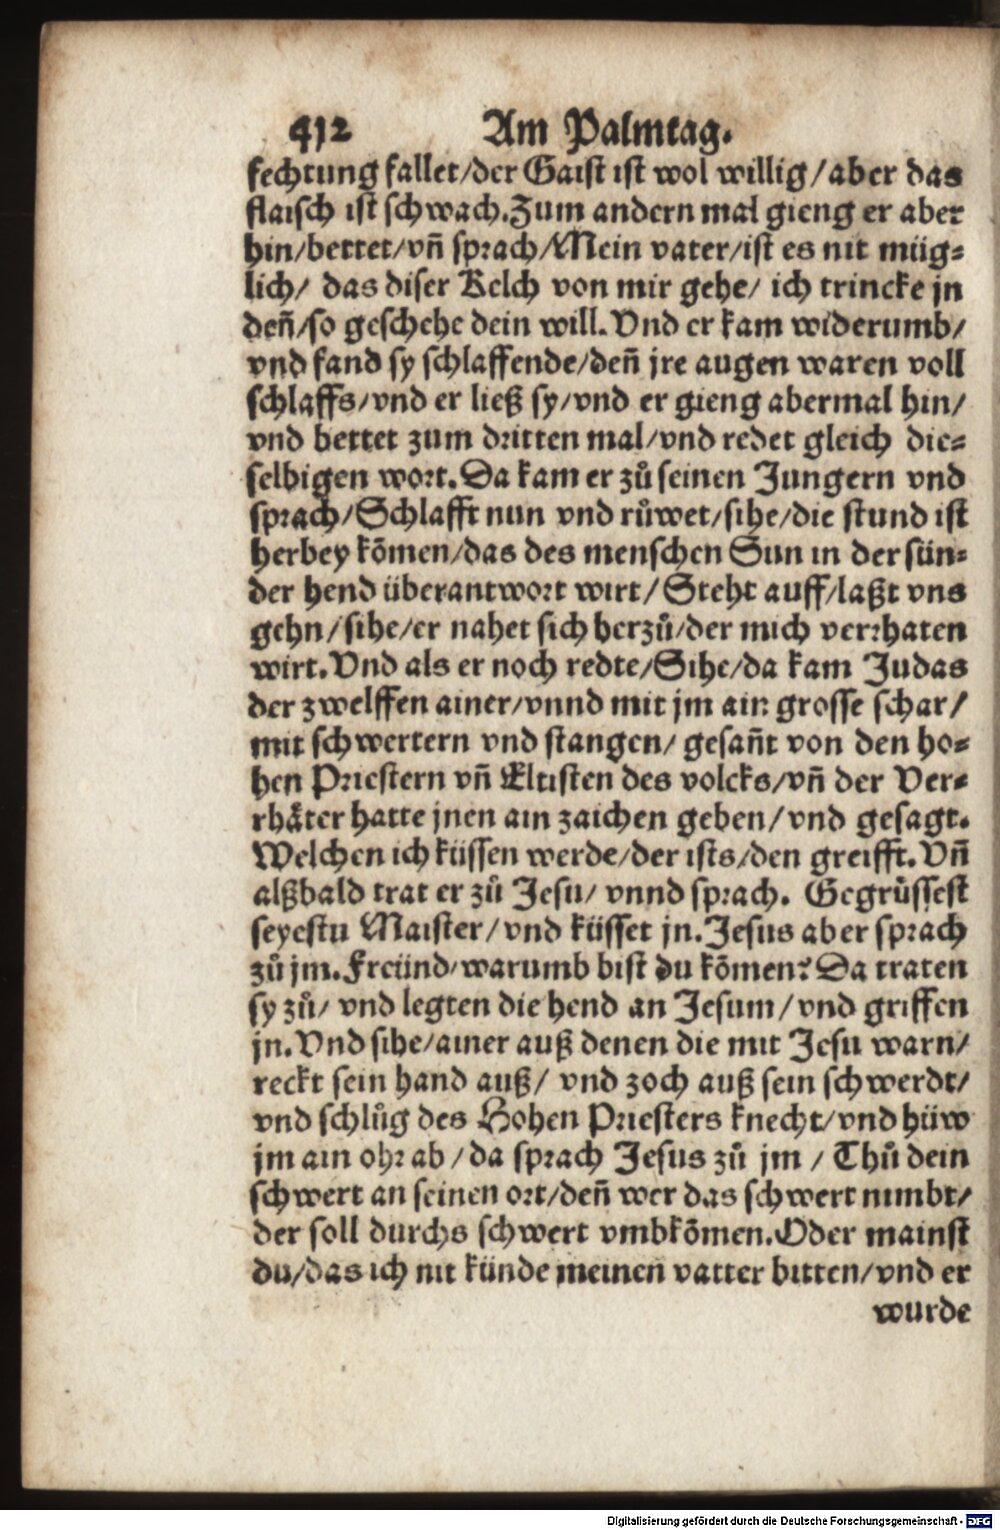 412 Am Palmtag.
fechtung fallet/der Gaist ist wol willig/aber das
flaisch ist schwach.Zum andern mal gieng er aber
hin/bettet/vñ sprach/Mein vater/ist es nit müg⸗
lich/ das diser Kelch von mir gehe/ ich trincke jn
deñ/so geschehe dein will.Vnd er kam widerumb/
vnd fand sy schlaffende/deñ jre augen waren voll
schlaffs/vnd er ließ sy/vnd er gieng abermal hin/
vnd bettet zum dritten mal/vnd redet gleich die⸗
selbigen wort.Da kam er zů seinen Jungern vnd
sprach/Schlafft nun vnd růwet/sihe/die stund ist
herbey kõmen/das des menschen Sun in der sün⸗
der hend überantwort wirt/Steht auff/laßt vns
gehn/sihe/er nahet sich herzů/der mich verrhaten
wirt.Vnd als er noch redte/Sihe/da kam Judas
der zwelffen ainer/vnnd mit jm ain grosse schar/
mit schwertern vnd stangen/ gesañt von den ho⸗
hen Priestern vñ Eltisten des volcks/vñ der Ver⸗
rhäter hatte jnen ain zaichen geben/vnd gesagt.
Welchen ich küssen werde/der ists/den greifft.Vñ
alßbald trat er zů Jesu/ vnnd sprach. Gegrůssest
seyestu Maister/vnd küsset jn.Jesus aber sprach
zů jm.Freünd/warumb bist du kõmen?Da traten
sy zů/ vnd legten die hend an Jesum/vnd griffen
jn.Vnd sihe/ainer auß denen die mit Jesu warn/
reckt sein hand auß/ vnd zoch auß sein schwerdt/
vnd schlůg des Hohen Priesters knecht/vnd hüw
jm ain ohr ab/da sprach Jesus zů jm/Thů dein
schwert an seinen ort/deñ wer das schwert nimbt/
der soll durchs schwert vmbkõmen.Oder mainst
du/das ich nit künde meinen vatter bitten/vnd er
wurde
Digitalisierung gefördert durch die Deutsche Forschungsgemeinschaft - DFG